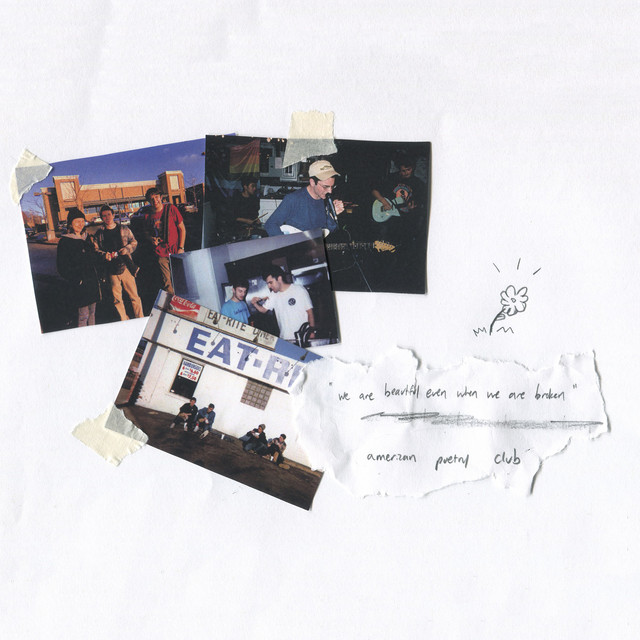 Coca-Cola
EAT-RITE DINER
EAT-RI
"we are beautiful even when we are broken"
american poetry club